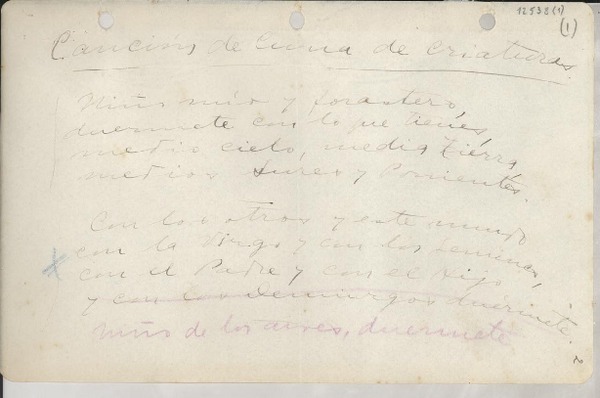 12538(1)
(1)
Canción de Cuna de Criaturas.
Niño mío y forastero,
duermete con lo que tienes,
medio cielo, media tierra,
medios y Ponientes.
Con los otros y este mundo
con la Virgo y con los Geminos,
con el Padre y con el Hijo
y con los Demiurgos duérmete.
niño de los aires, duermete
2